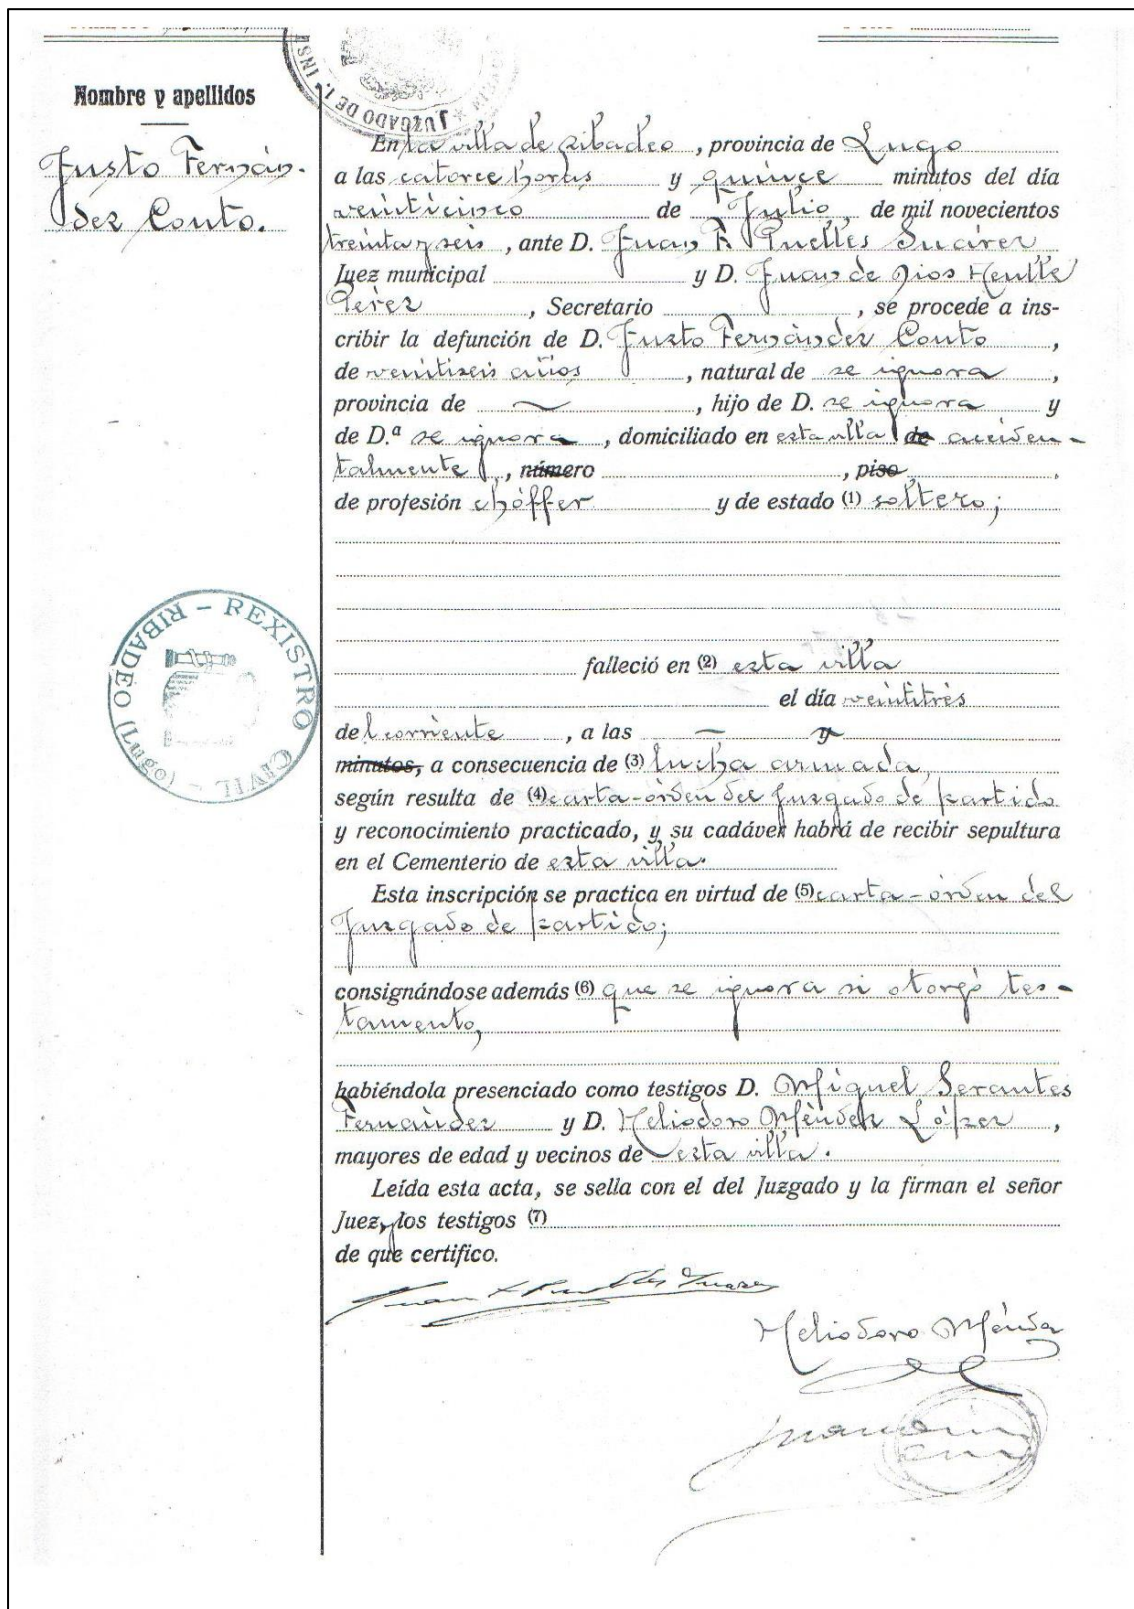 Nombre y apellidos
Justo Fernán-
dez Couto.
JUZGADO DE I. INS
En la villa de Ribadeo, provincia de Lugo
a las catorce horas y quince minutos del día
veinticinco de Julio de mil novecientos
treinta y seis, ante D. Juan F. Puelles Suárez
Juez municipal y D. Juan de Dios
Pérez, Secretario, se procede a ins-
cribir la defunción de D. Justo Fernández Couto,
de veintiseis años, natural de se ignora,
provincia de —, hijo de D. se ignora y
de D.ª se ignora, domiciliado en esta villa de acciden-
talmente, número , piso .
de profesión chóffer y de estado (1) soltero;
falleció en (2) esta villa
el día veintitrés
del corriente, a las — y
minutos, a consecuencia de (3) lucha armada,
según resulta de (4) carta-órden del Juzgado de partido
y reconocimiento practicado, y su cadáver habrá de recibir sepultura
en el Cementerio de esta villa.
Esta inscripción se practica en virtud de (5) carta-órden del
Juzgado de partido;
consignándose además (6) que se ignora si otorgó tes-
tamento,
habiéndola presenciado como testigos D. Miguel Serantes
Fernández y D. Heliodoro Méndez López,
mayores de edad y vecinos de esta villa.
Leída esta acta, se sella con el del Juzgado y la firman el señor
Juez, los testigos (7)
de que certifico.
Heliodoro Méndez
REXISTRO CIVIL - RIBADEO (Lugo) -